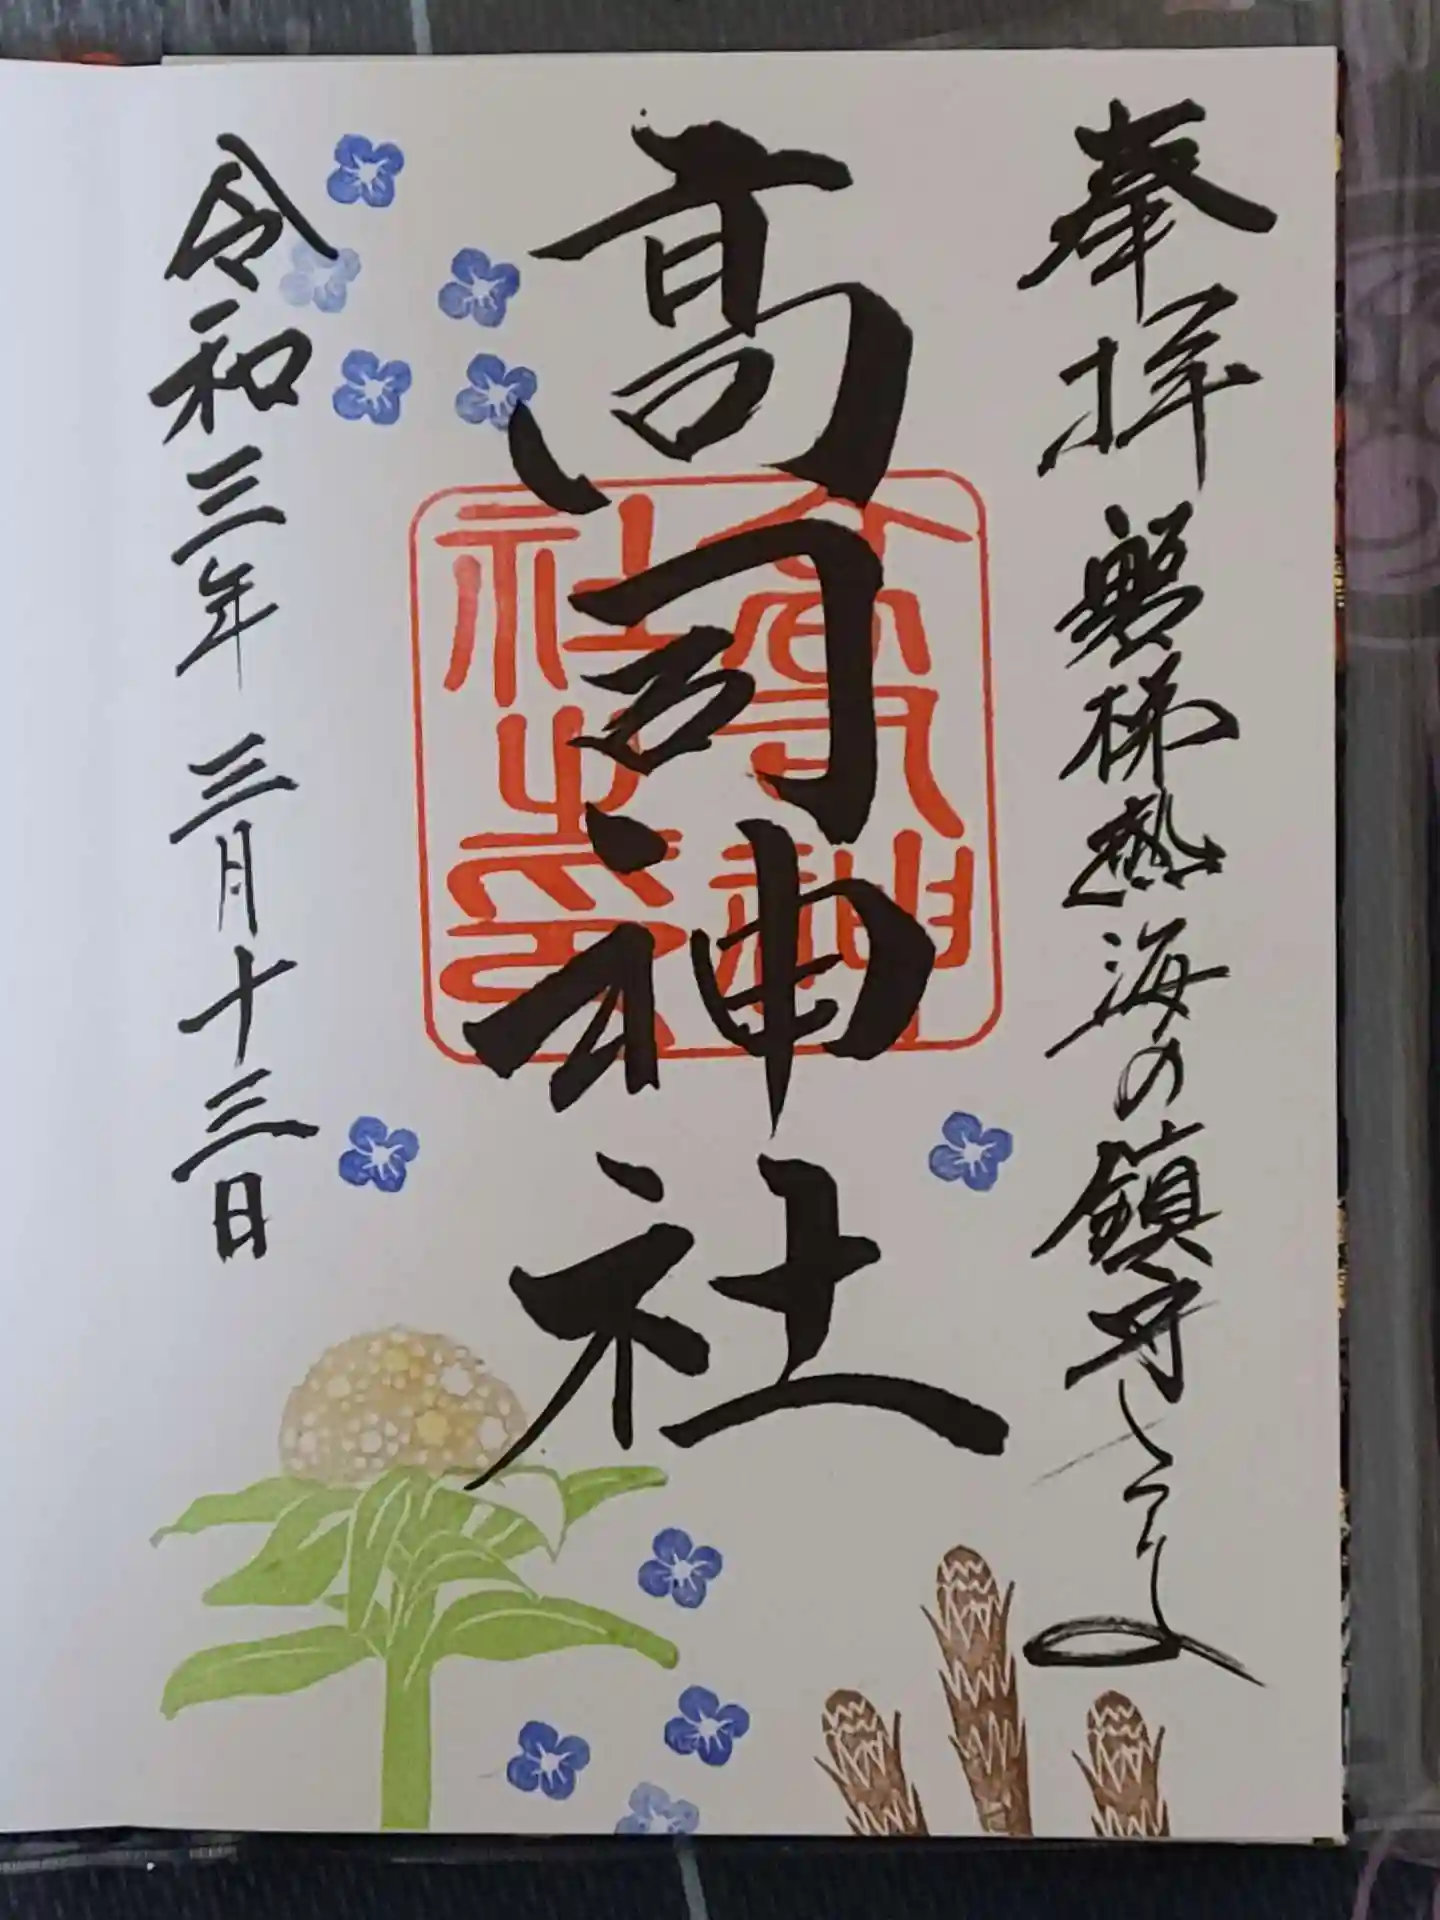 奉拝 磐梯熱海の鎮守
高司神社
高司神社之印
令和三年 三月十三日